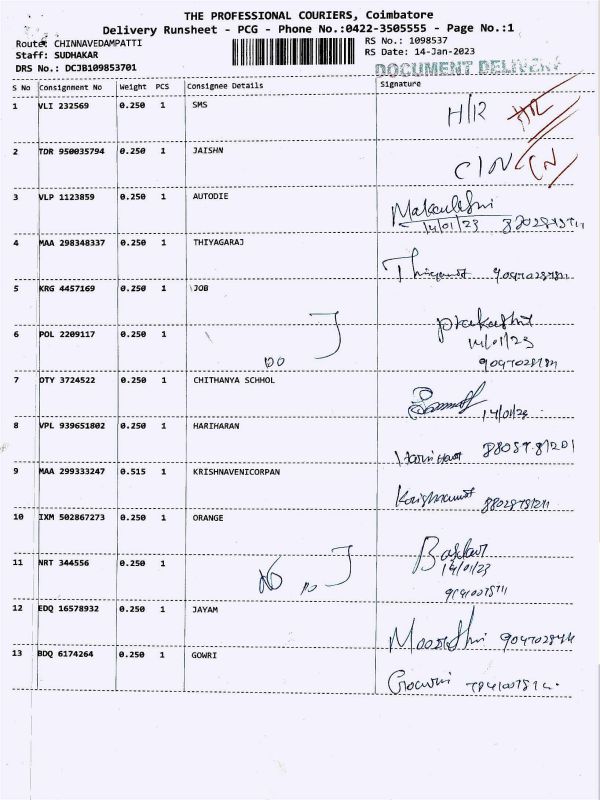 THE PROFESSIONAL COURIERS, Coimbatore
Delivery Runsheet - PCG - Phone No.:0422-3505555 - Page No.:1
Route: CHINNAVEDAMPATTI
RS No.: 1098537
Staff: SUDHAKAR
RS Date: 14-Jan-2023
DRS No.: DCJB109853701
DOCUMENT DELIVERY
S No Consignment No Weight PCS Consignee Details Signature
1 VLI 232569 0.250 1 SMS H/R HR
2 TDR 950035794 0.250 1 JAISHN C/N CN
3 VLP 1123859 0.250 1 AUTODIE
14/01/23
4 MAA 298348337 0.250 1 THIYAGARAJ
5 KRG 4457169 0.250 1 JOB
6 POL 2209117 0.250 1 DO Prakash
14/01/23
7 DTY 3724522 0.250 1 CHITHANYA SCHHOL
14/01/23
8 VPL 939651802 0.250 1 HARIHARAN
9 MAA 299333247 0.515 1 KRISHNAVENICORPAN
10 IXM 502867273 0.250 1 ORANGE
11 NRT 344556 0.250 1
14/01/23
12 EDQ 16578932 0.250 1 JAYAM
13 BDQ 6174264 0.250 1 GOWRI Gowri